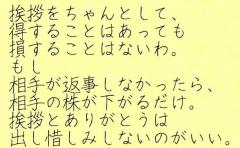 挨拶をちゃんとして、
得することはあっても
損することはないわ。
もし
相手が返事しなかったら、
相手の株が下がるだけ。
挨拶とありがとうは
出し惜しみしないのがいい。